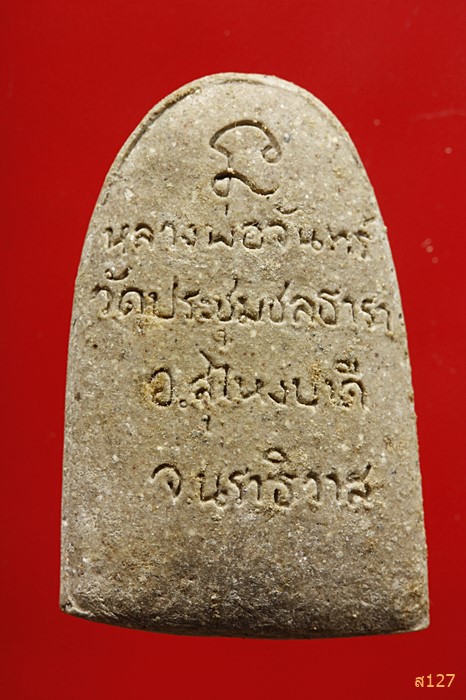 หลวงพ่อจันทร์
วัดประชุมชลธารา
อ.สุไหงปาดี
จ.นราธิวาส
ส127